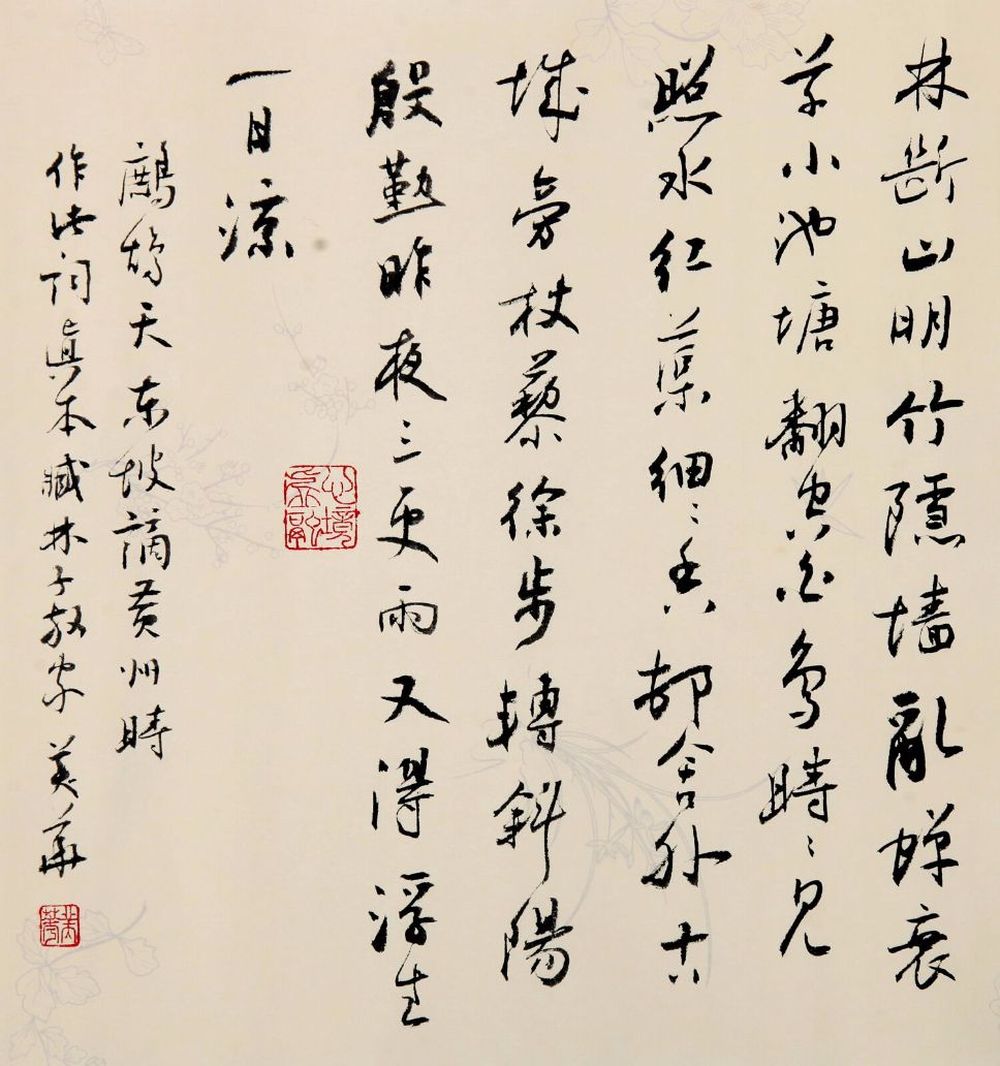 林斷山明竹隱墙亂蟬衰
草小池塘翻空白鳥時〻見
照水紅蕖細〻香邨舍外古
城旁杖藜徐步轉斜陽
殷勤昨夜三更雨又得浮生
一日涼
鷓鴣天东坡謫黄州時
作此词眞本藏林子敬家 美華